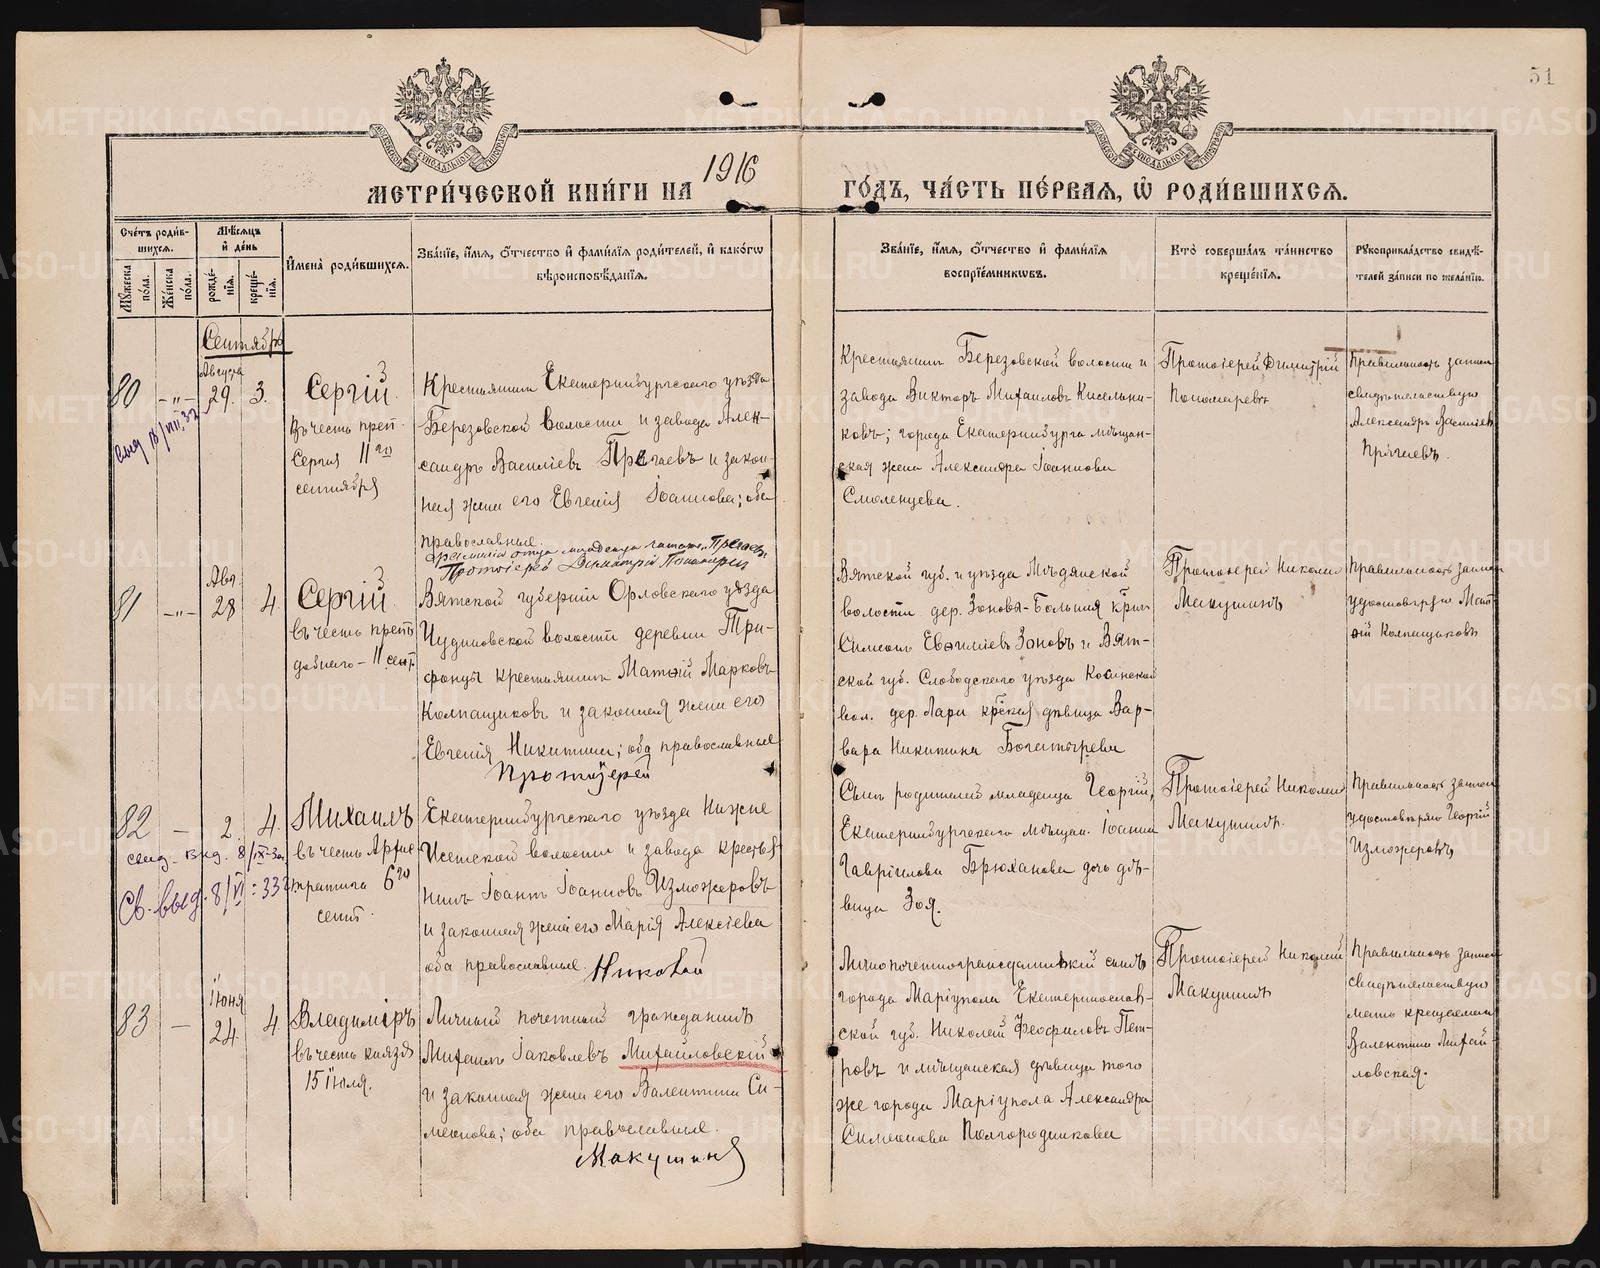 51
МЕТРИ́ЧЕСКОЙ КНИ́ГИ НА 1916 ГО́ДЪ, ЧА́СТЬ ПЕ́РВАЯ, Ѿ РОДИ́ВШИХСЯ.
Сче́тъ роди́в-
шихся.
Мꙋ́жеска по́ла.
Же́нска по́ла.
Мѣ́сяцъ
и҆ де́нь
рожде́-
нїя.
креще́-
нїя.
И҆мена̀ роди́вшихся.
Зва́нїе, и҆́мя, о҆́тчество и҆ фами́лїя роди́телей, и҆ како́гѡ
вѣроисповѣ́данїя.
Зва́нїе, и҆́мя, о҆́тчество и҆ фами́лїя
воспрїе́мникѡвъ.
Кто̀ соверша́лъ та́инство
креще́нїя.
Рꙋкоприкла́дство свидѣ́-
телей за́писи по жела́нїю.
Сентябрь
80
-"-
Августа
29.
3.
Сергій.
Въ честь преп.
Сергія 11го
сентября
Крестьянинъ Екатеринбургскаго уѣзда
Березовской волости и завода Алек-
сандръ Василіевъ Прягаевъ и закон-
ная жена его Евгенія Іоаннова; оба
православные.
Фамилія отца младенца читать „Прягаевъ
Протоіерей Димитрій Пономаревъ
Крестьянинъ Березовской волости и
завода Викторъ Михаиловъ Кисельни-
ковъ; города Екатеринбурга мѣщан-
ская жена Александра Іоаннова
Смоленцева.
Протоіерей Димитрій
Пономаревъ
Правильность записи
свидѣтельствую
Александръ Василіев
Прягаевъ.
81
-"-
Авг.
28
4.
Сергій.
въ честь препо
добнаго - 11 сент.
Вятской губерніи Орловскаго уѣзда
Чудиновской волости деревни Три-
фонцы крестьянинъ Матѳій Марковъ
Колпащиковъ и законная жена его
Евгенія Никитина; оба православные
Протоіерей
Вятской губ. и уѣзда Мѣдянской
волости дер. Зоновы-Большія крин
Симеонъ Евѳиміевъ Зоновъ и Вят-
ской губ. Слободскаго уѣзда Косинской
вол. дер. Лари кр̃ская дѣвица Вар-
вара Никитина Богатырева
Протоіерей Николай
Макушинъ
Правильность записи
удостовѣряю Мат-
ѳій Колпащиковъ
82
—
2.
4.
Михаилъ
въ честь Архис
тратига 6го
сент.
Екатеринбургскаго уѣзда Нижне
Исетской волости и завода крестья
нинъ Іоаннъ Іоанновъ Изможеровъ
и законная жена его Марія Алексіева
оба православные.
Николай
Сынъ родителей младенца Георгій,
Екатеринбургскаго мѣщан. Іоанна
Гавріилова Брюханова дочь дѣ-
вица Зоя.
Протоіерей Николай
Макушинъ.
Правильность записи
удостовѣряю Георгій
Изможеровъ
83
—
Іюня
24.
4
Владиміръ
въ честь князя
15 Іюля.
Личный почетный гражданинъ
Михаилъ Іаковлевъ Михайловскій
и законная жена его Валентина Си-
меонова; оба православные.
Макушинъ
Личнопочетногражданскій сынъ
города Маріуполя Екатеринослав-
ской губ. Николай Феофиловъ Пет-
ровъ и мѣщанская дѣвица того
же города Маріуполя Александра
Симеонова Полгородникова
Протоіерей Николай
Макушинъ
Правильность записи
свидѣтельствую
мать крещаемаго
Валентина Михай-
ловская.
METRIKI.GASO-URAL.RU